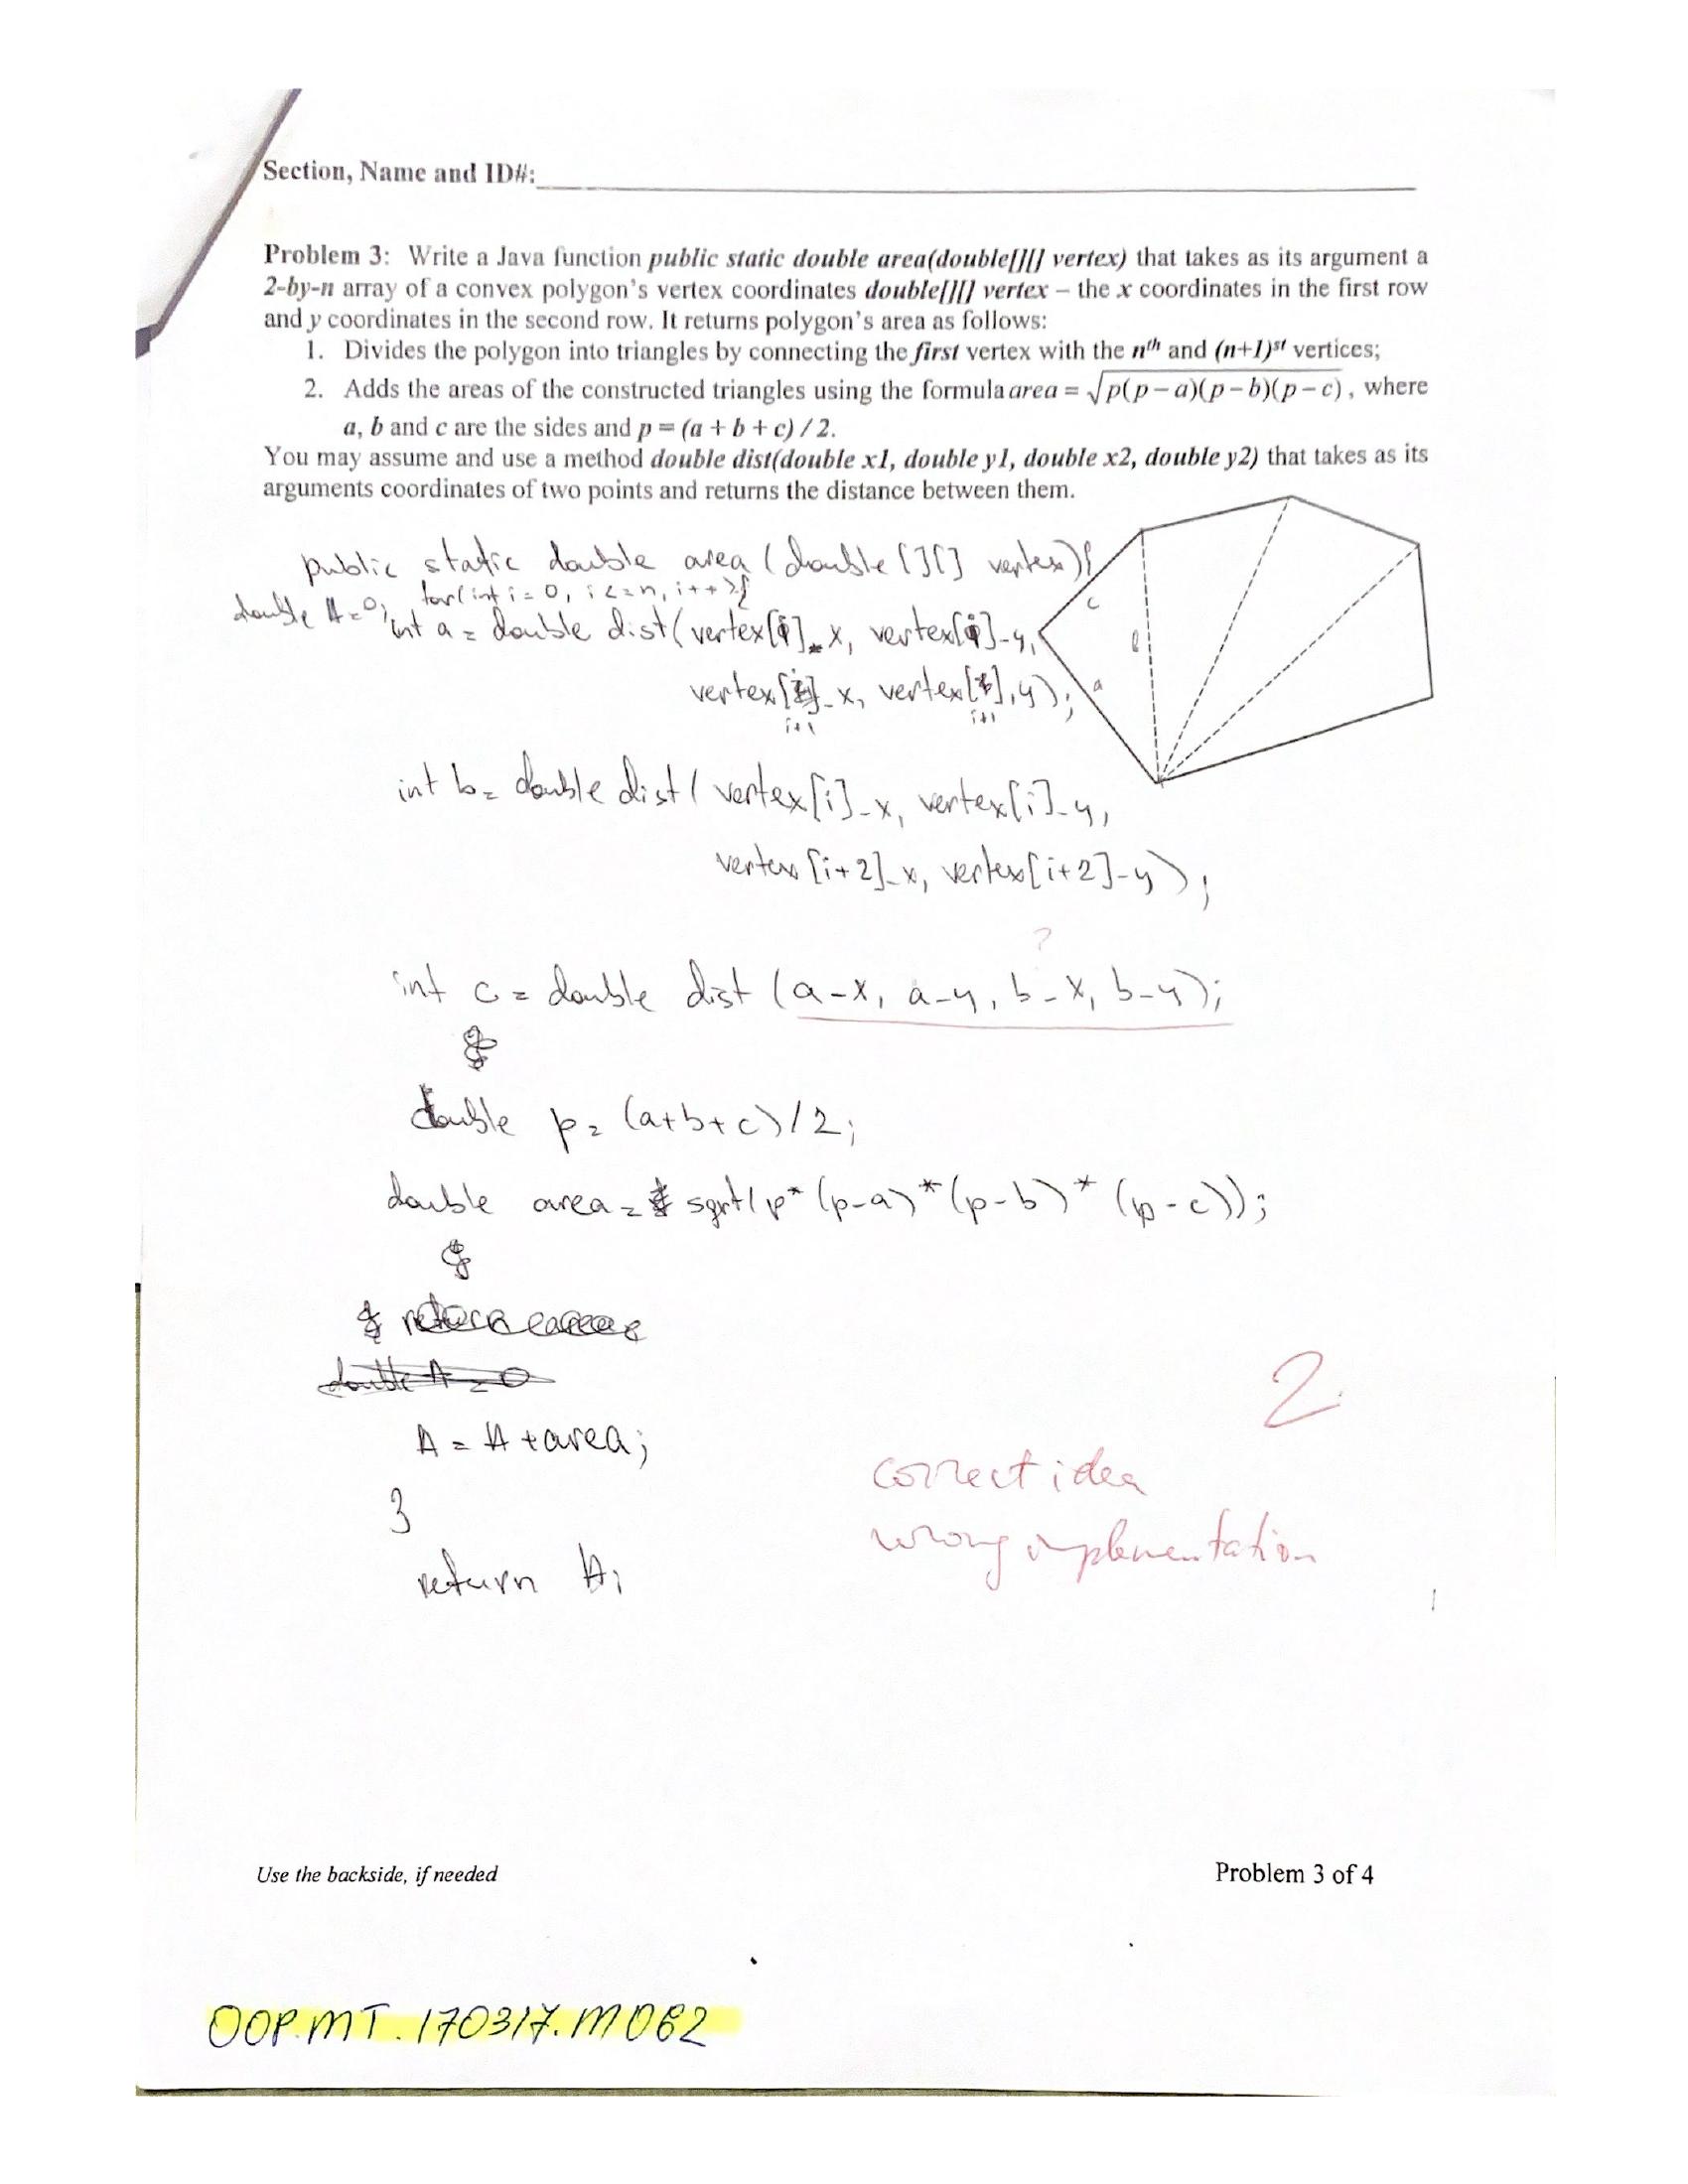 Section, Name and ID#:
Problem 3: Write a Java function public static double area(double[][] vertex) that takes as its argument a
2-by-n array of a convex polygon's vertex coordinates double[][] vertex – the x coordinates in the first row
and y coordinates in the second row. It returns polygon's area as follows:
1. Divides the polygon into triangles by connecting the first vertex with the nth and (n+1)st vertices;
2. Adds the areas of the constructed triangles using the formula area = √p(p – a)(p – b)(p – c), where
a, b and c are the sides and p = (a + b + c) / 2.
You may assume and use a method double dist(double x1, double y1, double x2, double y2) that takes as its
arguments coordinates of two points and returns the distance between them.
public static double area (double [][] vertex){
double A=0; for(int i=0, i<=n, i++){
int a = double dist(vertex[i]_x, vertex[i]_y,
vertex[i+1]_x, vertex[i+1],y);
c
b
a
int b= double dist( vertex[i]_x, vertex[i]_y,
vertex [i+2]_x, vertex[i+2]_y);
?
int c = double dist (a_x, a_y, b_x, b_y);
double p= (a+b+c)/2;
double area = sqrt(p*(p-a)*(p-b)*(p-c));
double A=0
A = A+area;
}
return A;
2
correct idea
wrong implementation
Use the backside, if needed
Problem 3 of 4
OOP.MT.170317.M062